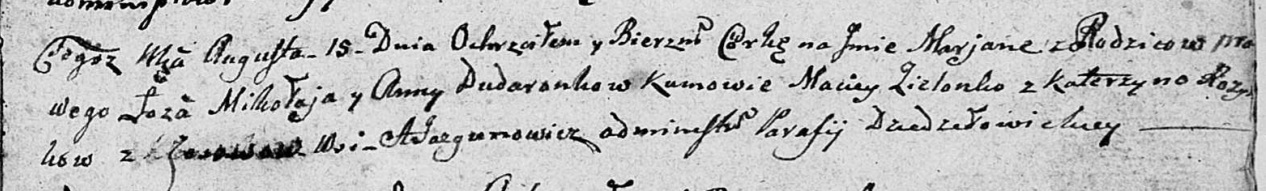 Tegoz Mca Augusta - 15 - Dnia Ochrzciłem y Bierzm Corkę na Jmie Marjane z Rodzicow pra
wego Łoza Mikołaja y Anny Dudaronkow Kumowie Maciey Zielonko z Katerzyno
kow z Wsi - A Jazgunowicz administr Parafij Dziedziełowickiey